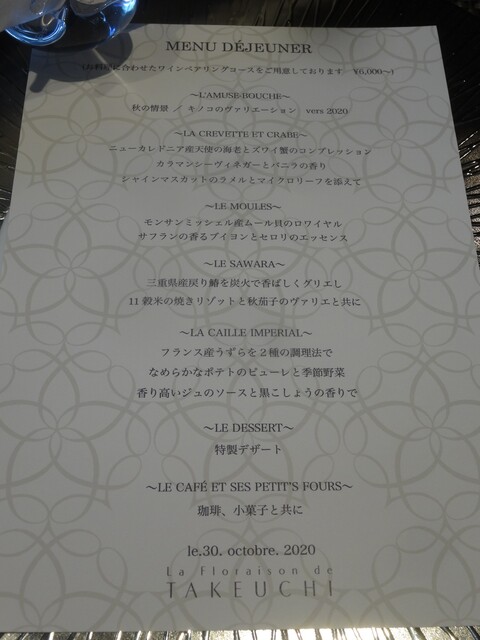 MENU DÉJEUNER
(お料理に合わせたワインペアリングコースをご用意しております ¥6,000〜)
〜L'AMUSE-BOUCHE〜
秋の情景 ／ キノコのヴァリエーション vers 2020
〜LA CREVETTE ET CRABE〜
ニューカレドニア産天使の海老とズワイ蟹のコンプレッション
カラマンシーヴィネガーとバニラの香り
シャインマスカットのラメルとマイクロリーフを添えて
〜LE MOULES〜
モンサンミッシェル産ムール貝のロワイヤル
サフランの香るブイヨンとセロリのエッセンス
〜LE SAWARA〜
三重県産戻り鰆を炭火で香ばしくグリエし
11 穀米の焼きリゾットと秋茄子のヴァリエと共に
〜LA CAILLE IMPERIAL〜
フランス産うずらを２種の調理法で
なめらかなポテトのピューレと季節野菜
香り高いジュのソースと黒こしょうの香りで
〜LE DESSERT〜
特製デザート
〜LE CAFÉ ET SES PETIT'S FOURS〜
珈琲、小菓子と共に
le.30. octobre. 2020
La Floraison de
TAKEUCHI